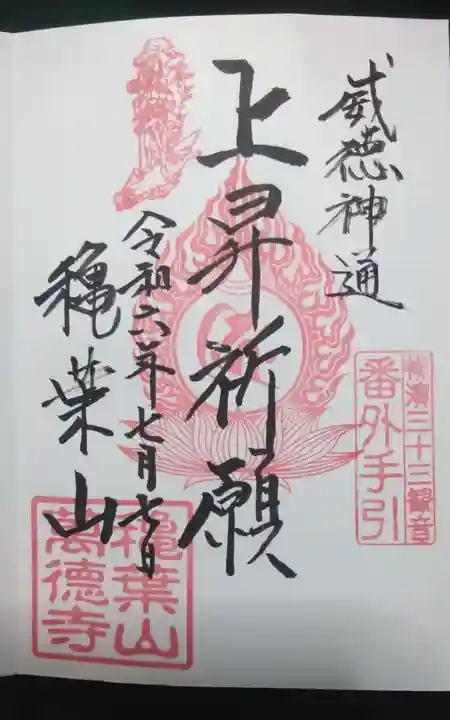 威徳神通
三十三観音
番外手引
上昇祈願
令和六年七月七日
龝葉山
龝葉山
萬德寺